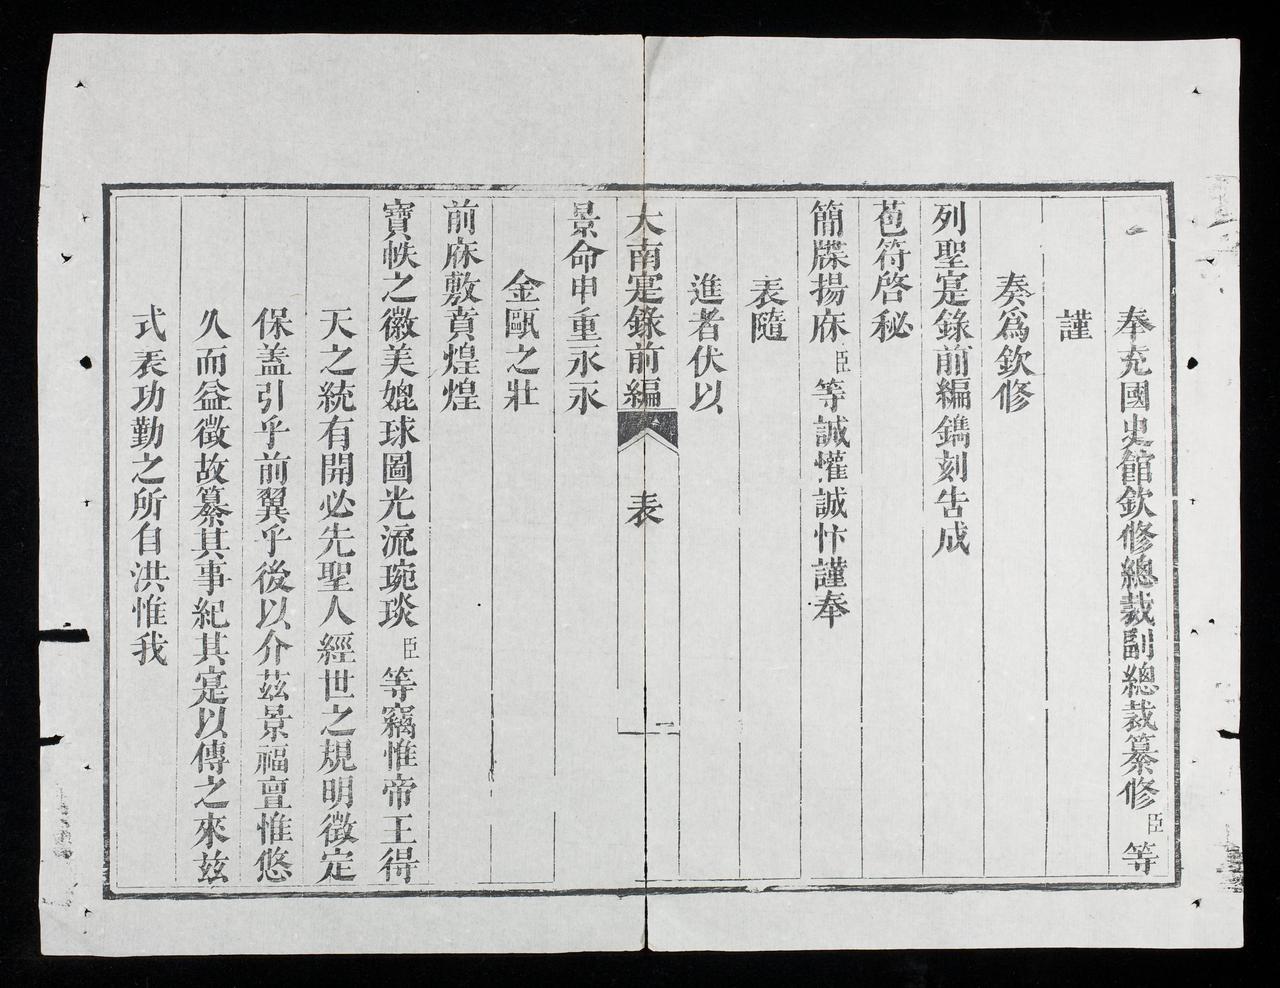 奉充國史館欽修總裁副總裁纂修臣等
謹
奏爲欽修
列聖寔錄前編鐫刻告成
苞符啓秘
簡牒揚庥臣等誠懽誠忭謹奉
表隨
進者伏以
大南寔錄前編 表 一
景命申重永永
金甌之壯
前庥敷賁煌煌
寶帙之徽美媲球圖光流琬琰臣等竊惟帝王得
天之統有開必先聖人經世之規明徵定
保盖引乎前翼乎後以介茲景福亶惟悠
久而益徵故纂其事紀其寔以傳之來茲
式表功勤之所自洪惟我